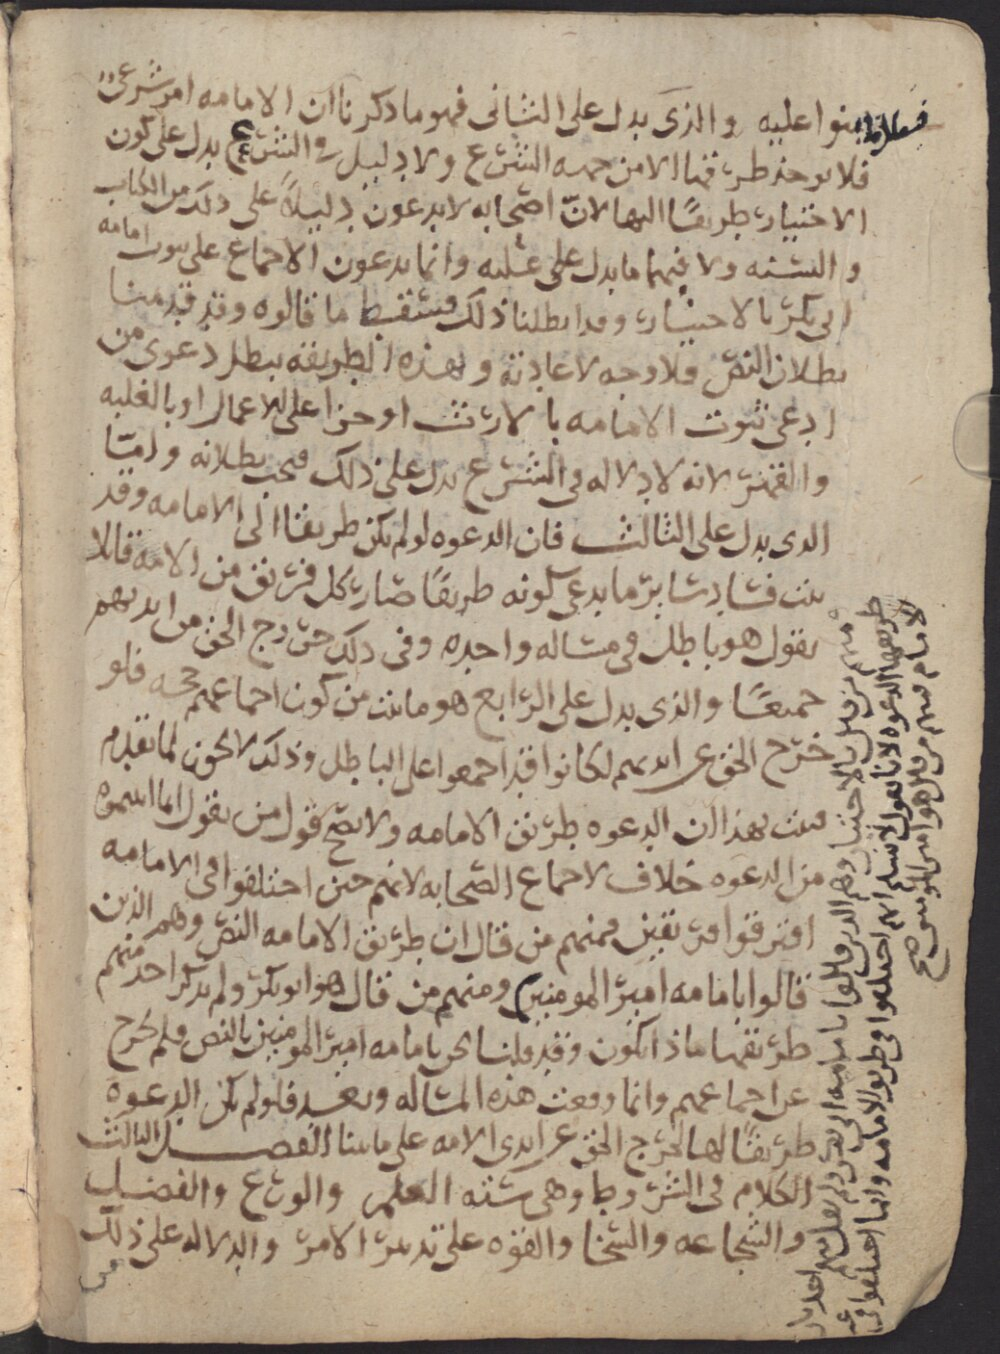 بنوا عليه والذي يدل على الثاني فهو ما ذكرنا ان الامامه امر شرعي
فلا يوخذ طريقها الا من جهه الشرع ولا دليل في الشرع يدل على كون
الاختيار طريقًا اليها لان اصحابه لا يدعون دليلاً على ذلك من الكتاب
والسنه ولا فيهما ما يدل على مثله وانما يدعون الاجماع على ثبوت امامه
ابي بكر بالاختيار وقد ابطلنا ذلك فسقط ما قالوه وقد قدمنا
بطلان النص فلا وجه لاعادته وبهذه الطريقه يبطل دعوى من
ادعى ثبوت الامامه بالارث او جزا على الاعمال او بالغلبه
والقهر لانه لا دلاله في الشرع يدل على ذلك فيجب بطلانه وامّا
الذي يدل على الثالث فان الدعوه لو لم تكن طريقا الى الامامه وقد
بينت فساد سائر ما يدعى كونه طريقًا صار كل فريق من الامه قائلا
بقول هو باطل في مساله واحده وفي ذلك خروج الحق من ايديهم
جميعًا والذي يدل على الرابع هو ما بينت من كون اجماعهم حجه فلو
خرج الحق عن ايديهم لكانوا قد اجمعوا على الباطل وذلك لا يجوز لما تقدم
فثبت بهذا ان الدعوه طريق الامامه ولا يصح قول من يقول انما اثبتموه
من الدعوه خلاف لاجماع الصحابه لانهم حين اختلفوا في الامامه
افترقوا فريقين فمنهم من قال ان طريق الامامه النص وهم الذين
قالوا بامامه امير المومنين ومنهم من قال هو ابو بكر ولم يذكر احد منهم
طريقها ماذا تكون وقد قلنا نحن بامامه امير المومنين بالنص فلم نخرج
عن اجماعهم وانما وقعت هذه المساله وبعد فلو لم تكن الدعوه
طريقًا لها لخرج الحق عن ايدي الامه على ما بينا الفصل الثالث
الكلام في الشروط وهي سته العلم والورع والفضل
والشجاعه والسخا والقوه على تدبير الامر والدلاله على ذلك
منهم من قال بالاختيار وهم الذين قالوا بامامه ابي بكر ولم يقل منهم احد بان
طريقها الدعوه لانا نقول لا نسلم انهم اختلفوا في طريق الامامه وانما اختلفوا في
الامام فمنهم من قال هو امير المومنين صح